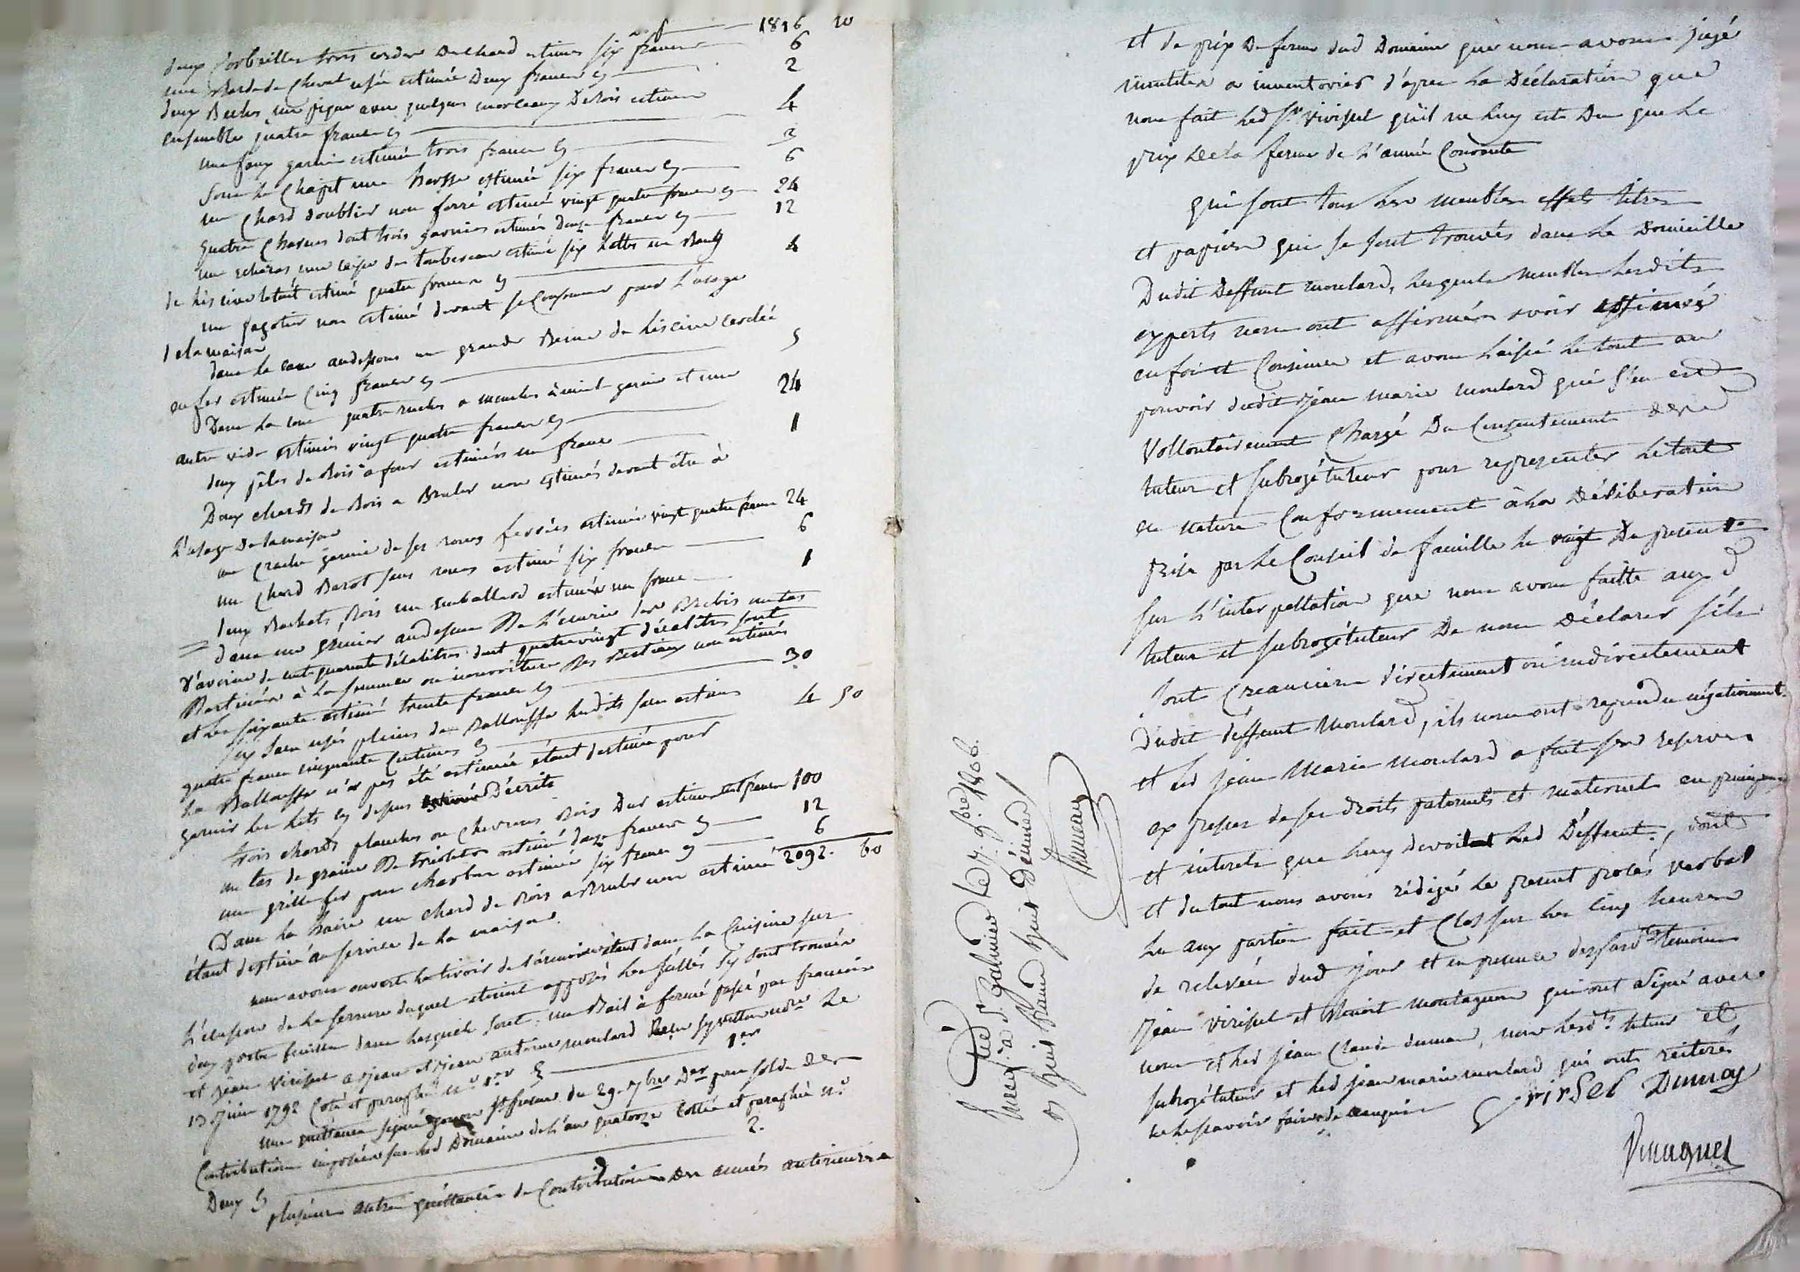 1816 10
deux Corbeilles trois cordes Dechard estimés six francs 6
une Barde de Cheval usée estimée Deux francs 2
deux Beches une pique avec quelques morceaux De Bois estimés
ensemble quatre francs 4
une faux garnie estimée trois francs 3
Sous le Chapit une herse estimée six francs 6
un Chard doublier non ferré estimé vingt quatre francs 24
quatre Charues dont trois garnies estimées douze francs 12
de liscive le tout estimé quatre francs 4
un fagotier non estimé devant se Consumer pour l'usage
de la maison
dans la cave audessous une grande Benne de liscive cerclée
en fer estimée Cinq francs 5
Dans la cour quatre ruches a mouches à miel garnies et une
autre vide estimées vingt quatre francs 24
deux pèles de Bois a four estimées un franc 1
Deux chards de Bois a Bruler non estimés devant être à
l'usage De la maison
un garnie de ses roues ferrées estimée vingt quatre francs 24
un Chard Barot sans roues estimé six francs 6
deux Bachats Bois un emballard estimés un franc 1
dans un grenier audessus De l'écurie des Brebis un tas
d'avoine de cent quarante décalitres dont quatrevingt décalitres sont
Destinés à la semence ou nourriture Des Bestiaux non estimés
et les soixante estimés trente francs 30
six sacs usés pleins de Ballouffe lesdits sacs estimés
quatre francs cinquante Centimes 4 50
la Ballouffe n'a pas été estimée étant destinée pour
garnir les lits cy depuis Décrits
trois chards planches ou Chevrons Bois Dur estimés cent francs 100
un tas de graine De triolets estimé douze francs 12
une grille fer pour charbon estimée six francs 6
2092. 60
Dans la haire un chard de Bois a Bruler non estimé
étant destiné au service de la maison.
nous avons ouvert le tiroir de l'armoire étant dans la Cuisine sur
l'écusson de la serrure duquel étoient apposés les scellés s'y sont trouvés
deux portes feuilles dans lesquels sont: un Bail à ferme passé par françois
et jean Virisel a jean et jean antoine moulard le
13 juin 1792 Coté et paraphé n.o 1er 1er
une quittance signée du 29. 7bre Der pour solde des
Contributions imposées sur led Domaine de l'an quatorze Cottée et paraphée n.o
Deux 2.
plusieurs autres quittances de Contributions Des années antérieures
et de prix De ferme dud Domaine que nous avons jugé
inutiles a inventorier d'après la Déclaration que
nous fait led Sr Virisel qu'il ne luy est Du que le
prix de la ferme de l'année Courante
qui sont tous les meubles effets titres
et papiers qui se sont trouvés dans le Domicille
Dudit Deffunt moulard, lesquels meubles lesdits
experts nous ont affirmés avoir estimés
en foi et Consience et avons laissé le tout au
pouvoir dudit jean marie moulard qui s'en est
Vollontairement Chargé Du Consentement desd
tuteur et subrogétuteur pour representer le tout
en nature Conformement à la Déliberation
prise par le Conseil de famille le vingt Du present
sur l'interpellation que nous avons faitte auxd
tuteur et subrogétuteur De nous Déclarer s'ils
sont Creanciers directement ou indirectement
dudit deffunt Moulard, ils nous ont repondu négativement
et led jean Marie moulard a fait ses reserves
expresses de ses droits paternels et maternels
et interets que luy devoit led Deffunt, dont
et du tout nous avons rédigé le present procés verbal
lu aux parties fait et Clos sur les Cinq heures
de relevée dud jour et en presence desd temoins
jean Virisel et Benoit montagnon qui ont signé avec
nous et led jean Claude dumas, non lesdts tuteur et
subrogétuteur et led jean marie moulard qui ont reiteré
ne le savoir faire de ce enquis
Virisel Dumas
Enregtré a St Galmier le 7. 9bre 1806.